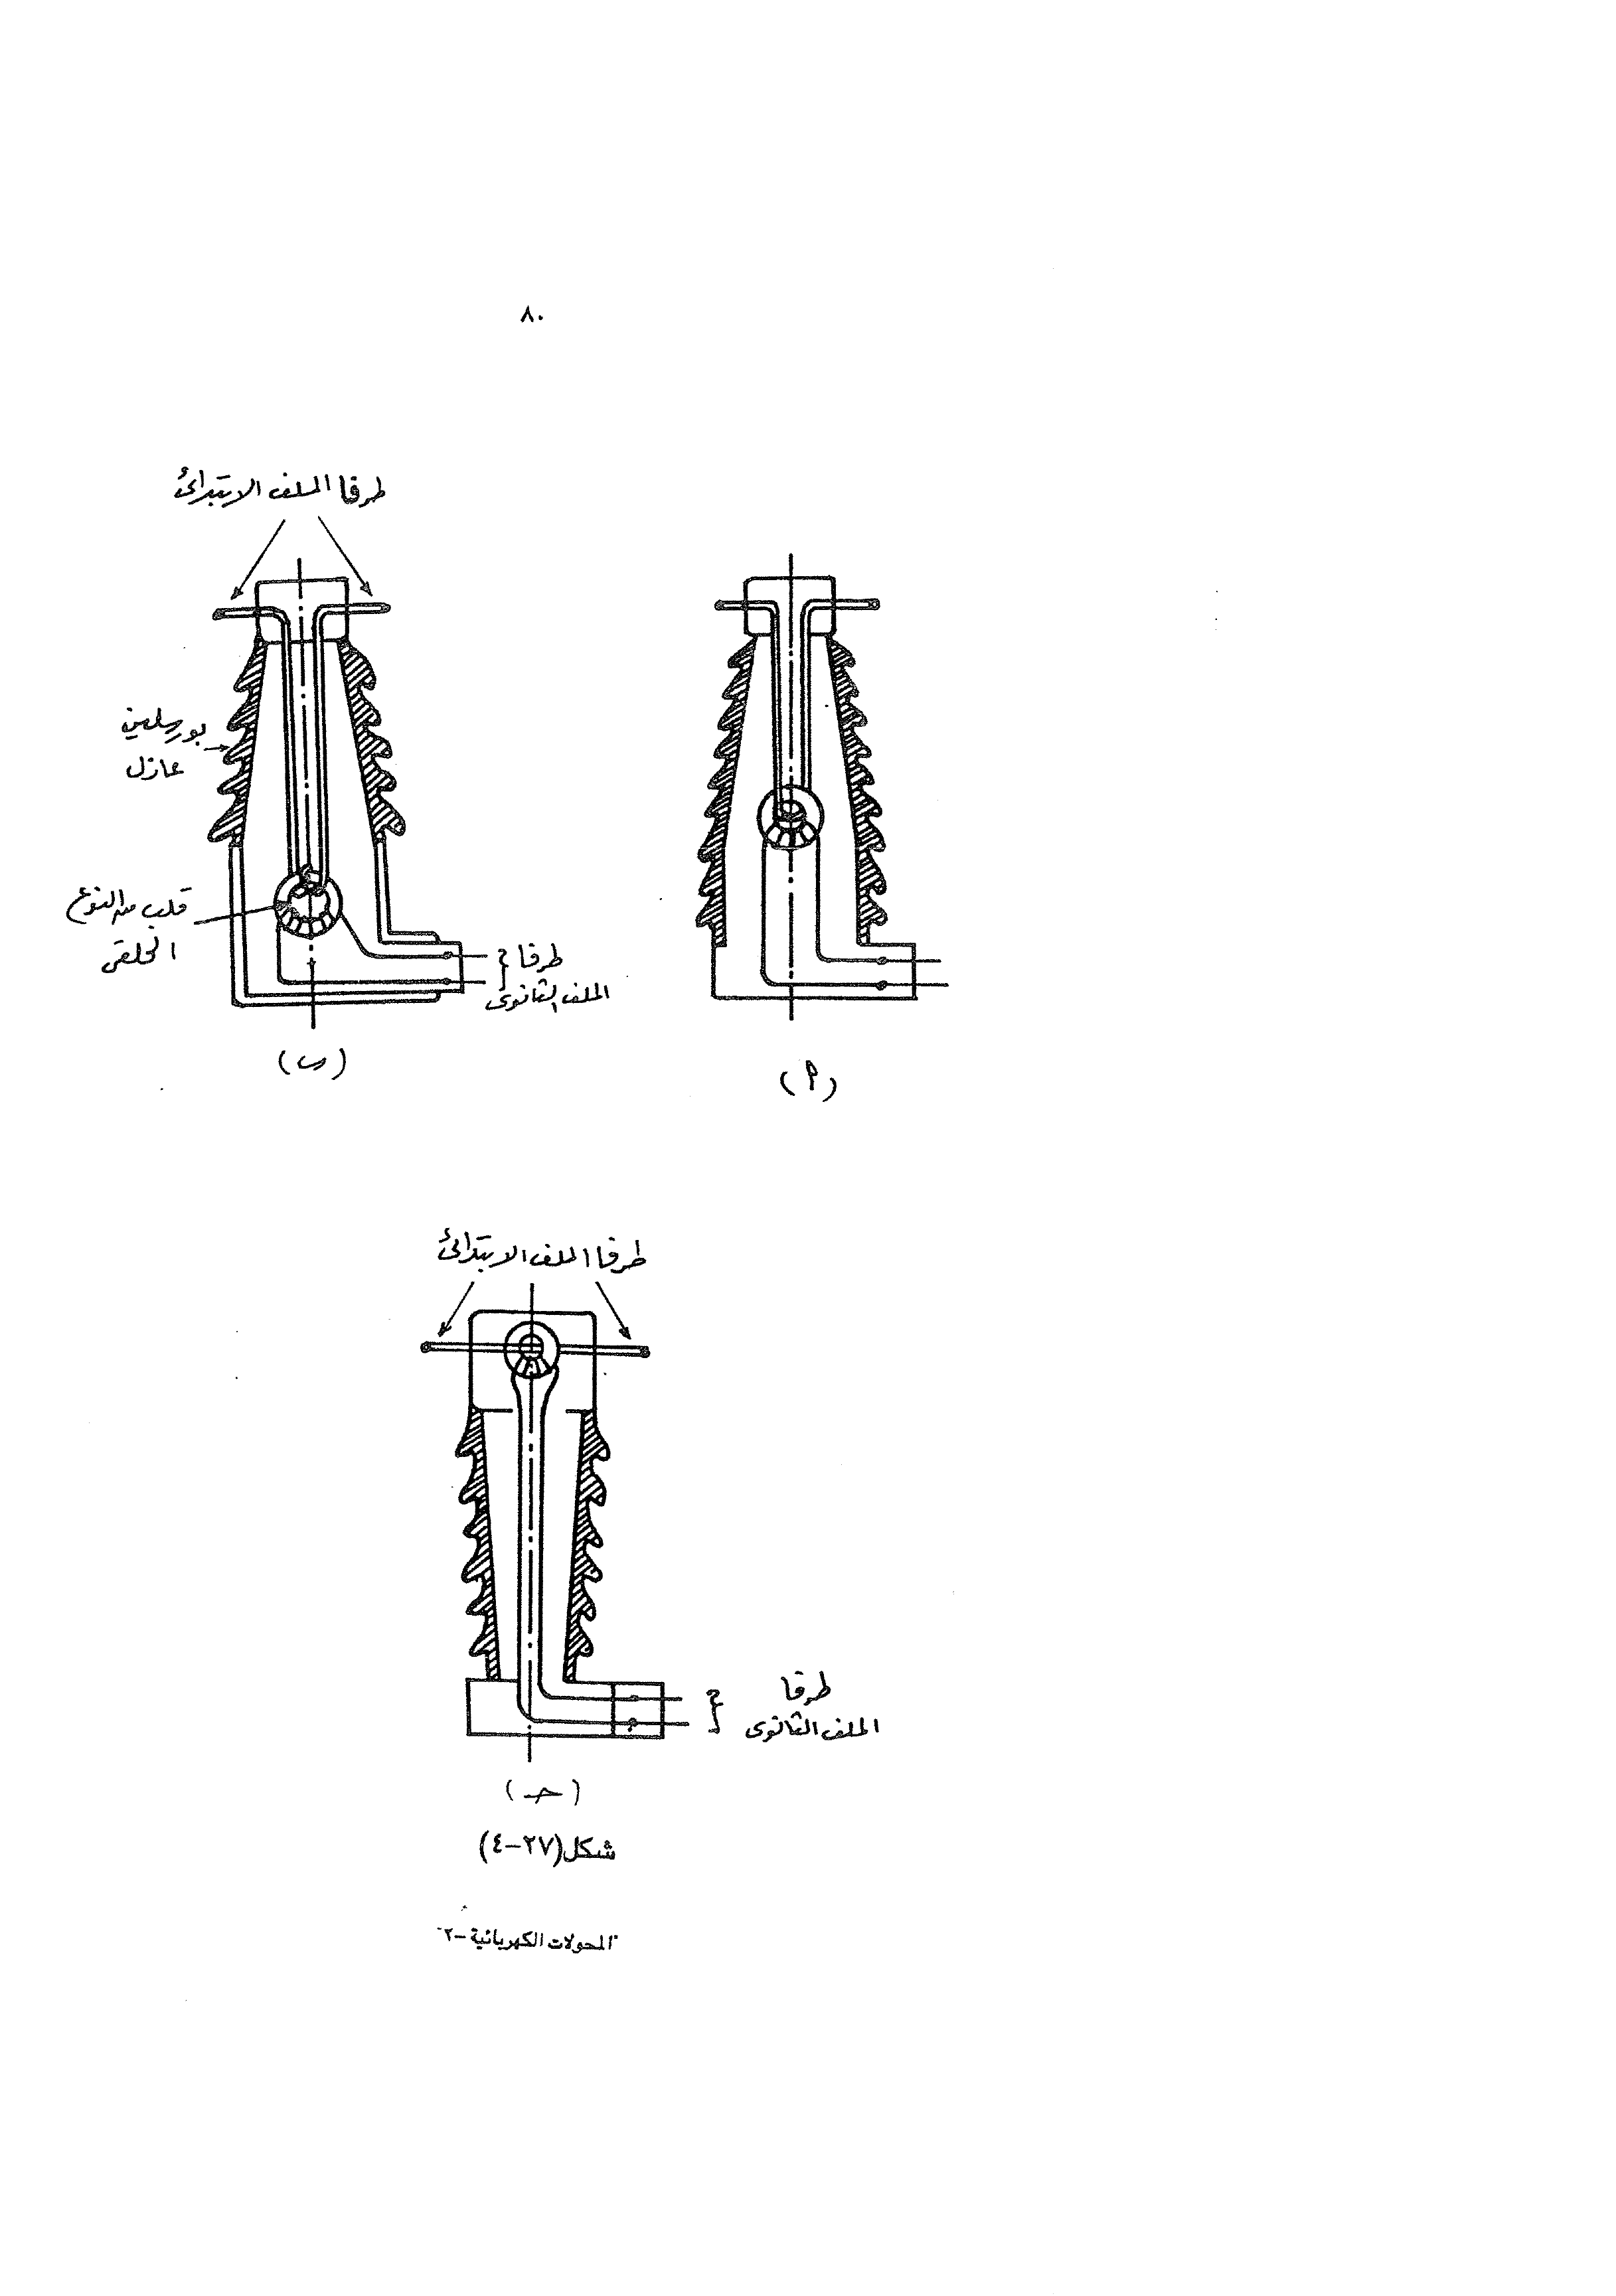 ٨٠
طرفا الملف الابتدائى
بورسلين
عازل
قلب من النوع
الحلقى
طرفا
الملف الثانوى
(ب)
(أ)
طرفا الملف الابتدائى
طرفا
الملف الثانوى
(حـ)
شكل(٢٧-٤)
المحولات الكهربائية -٢